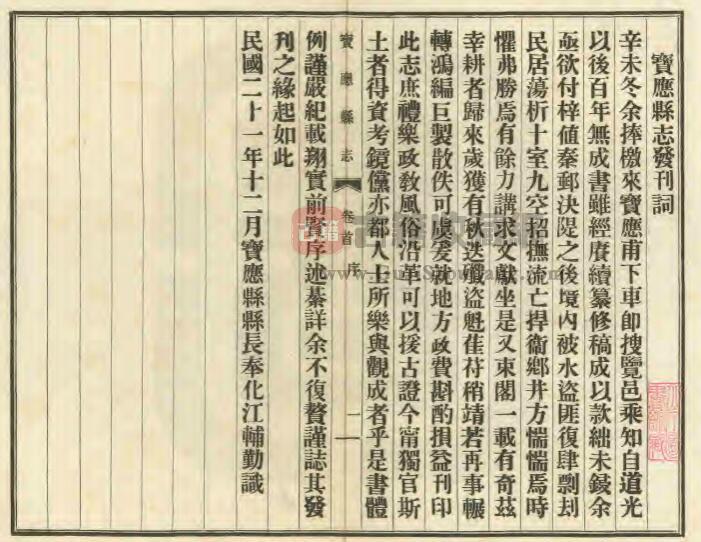 寶應縣志發刊詞
辛未冬余捧檄來寶應甫下車卽搜覽邑乘知自道光
以後百年無成書雖經賡續纂修稿成以款絀未鋟余
亟欲付梓值秦郵決隄之後境內被水盜匪復肆剽刦
民居蕩析十室九空招撫流亡捍衞鄕井方惴惴焉時
懼弗勝焉有餘力講求文獻坐是又束閣一載有奇茲
幸耕者歸來歲獲有秋迭殲盜魁萑苻稍靖若再事輾
轉鴻編巨製散佚可虞爰就地方政費斟酌損益刊印
此志庶禮樂政敎風俗沿革可以援古證今甯獨官斯
土者得資考鏡儻亦都人士所樂與觀成者乎是書體
寶應縣志
卷首 序
一
例謹嚴紀載翔實前賢序述綦詳余不復贅謹誌其發
刊之緣起如此
民國二十一年十二月寶應縣縣長奉化江輔勤識